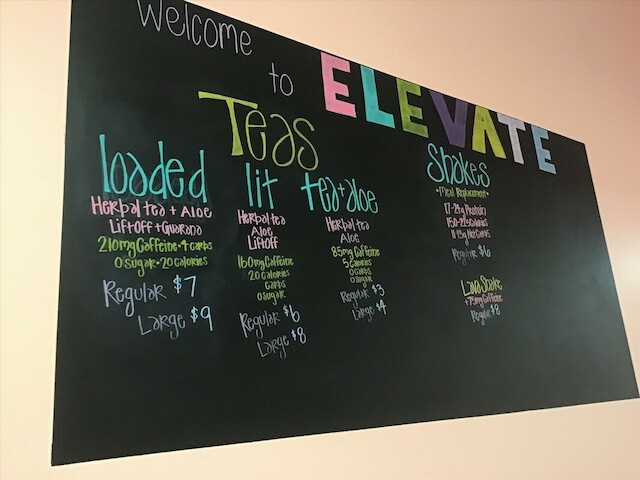 Welcome
to
ELEVATE
Teas
loaded
Herbal tea + Aloe
Liftoff + Guarana
210mg Caffeine • 4 carbs
0 sugar • 20 calories
Regular $7
Large $9
lit
Herbal tea
Aloe
Liftoff
160mg Caffeine
20 calories
carbs
0 sugar
Regular $6
Large $8
tea + aloe
Herbal tea
Aloe
85mg Caffeine
5 calories
0 carbs
0 sugar
Regular $3
Large $4
Shakes
• Meal Replacement •
17-24g Protein
calories
Net Carbs
Regular $6
Shake
+75mg Caffeine
Regular $8